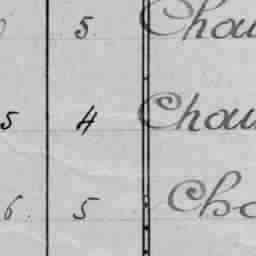 5 Chau
5 4 Chau
6 5 Cha